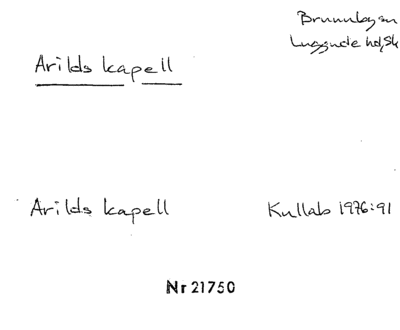 Brunnbysn
Luggude hd, Sk
Arilds kapell
Arilds kapell
Kullab 1976:91
Nr 21750